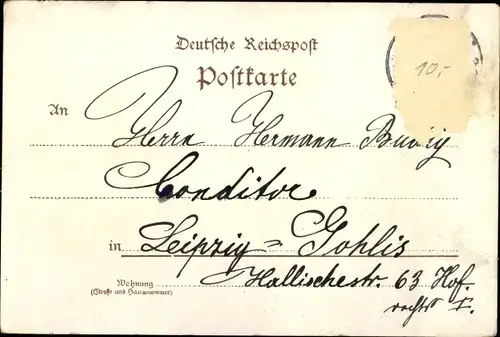 Deutsche Reichspost
Postkarte
10,-
An
Herrn Hermann
Conditor
in Leipzig = Gohlis
Wohnung
(Straße und Hausnummer)
Hallischestr. 63 Hof.
rechts I.